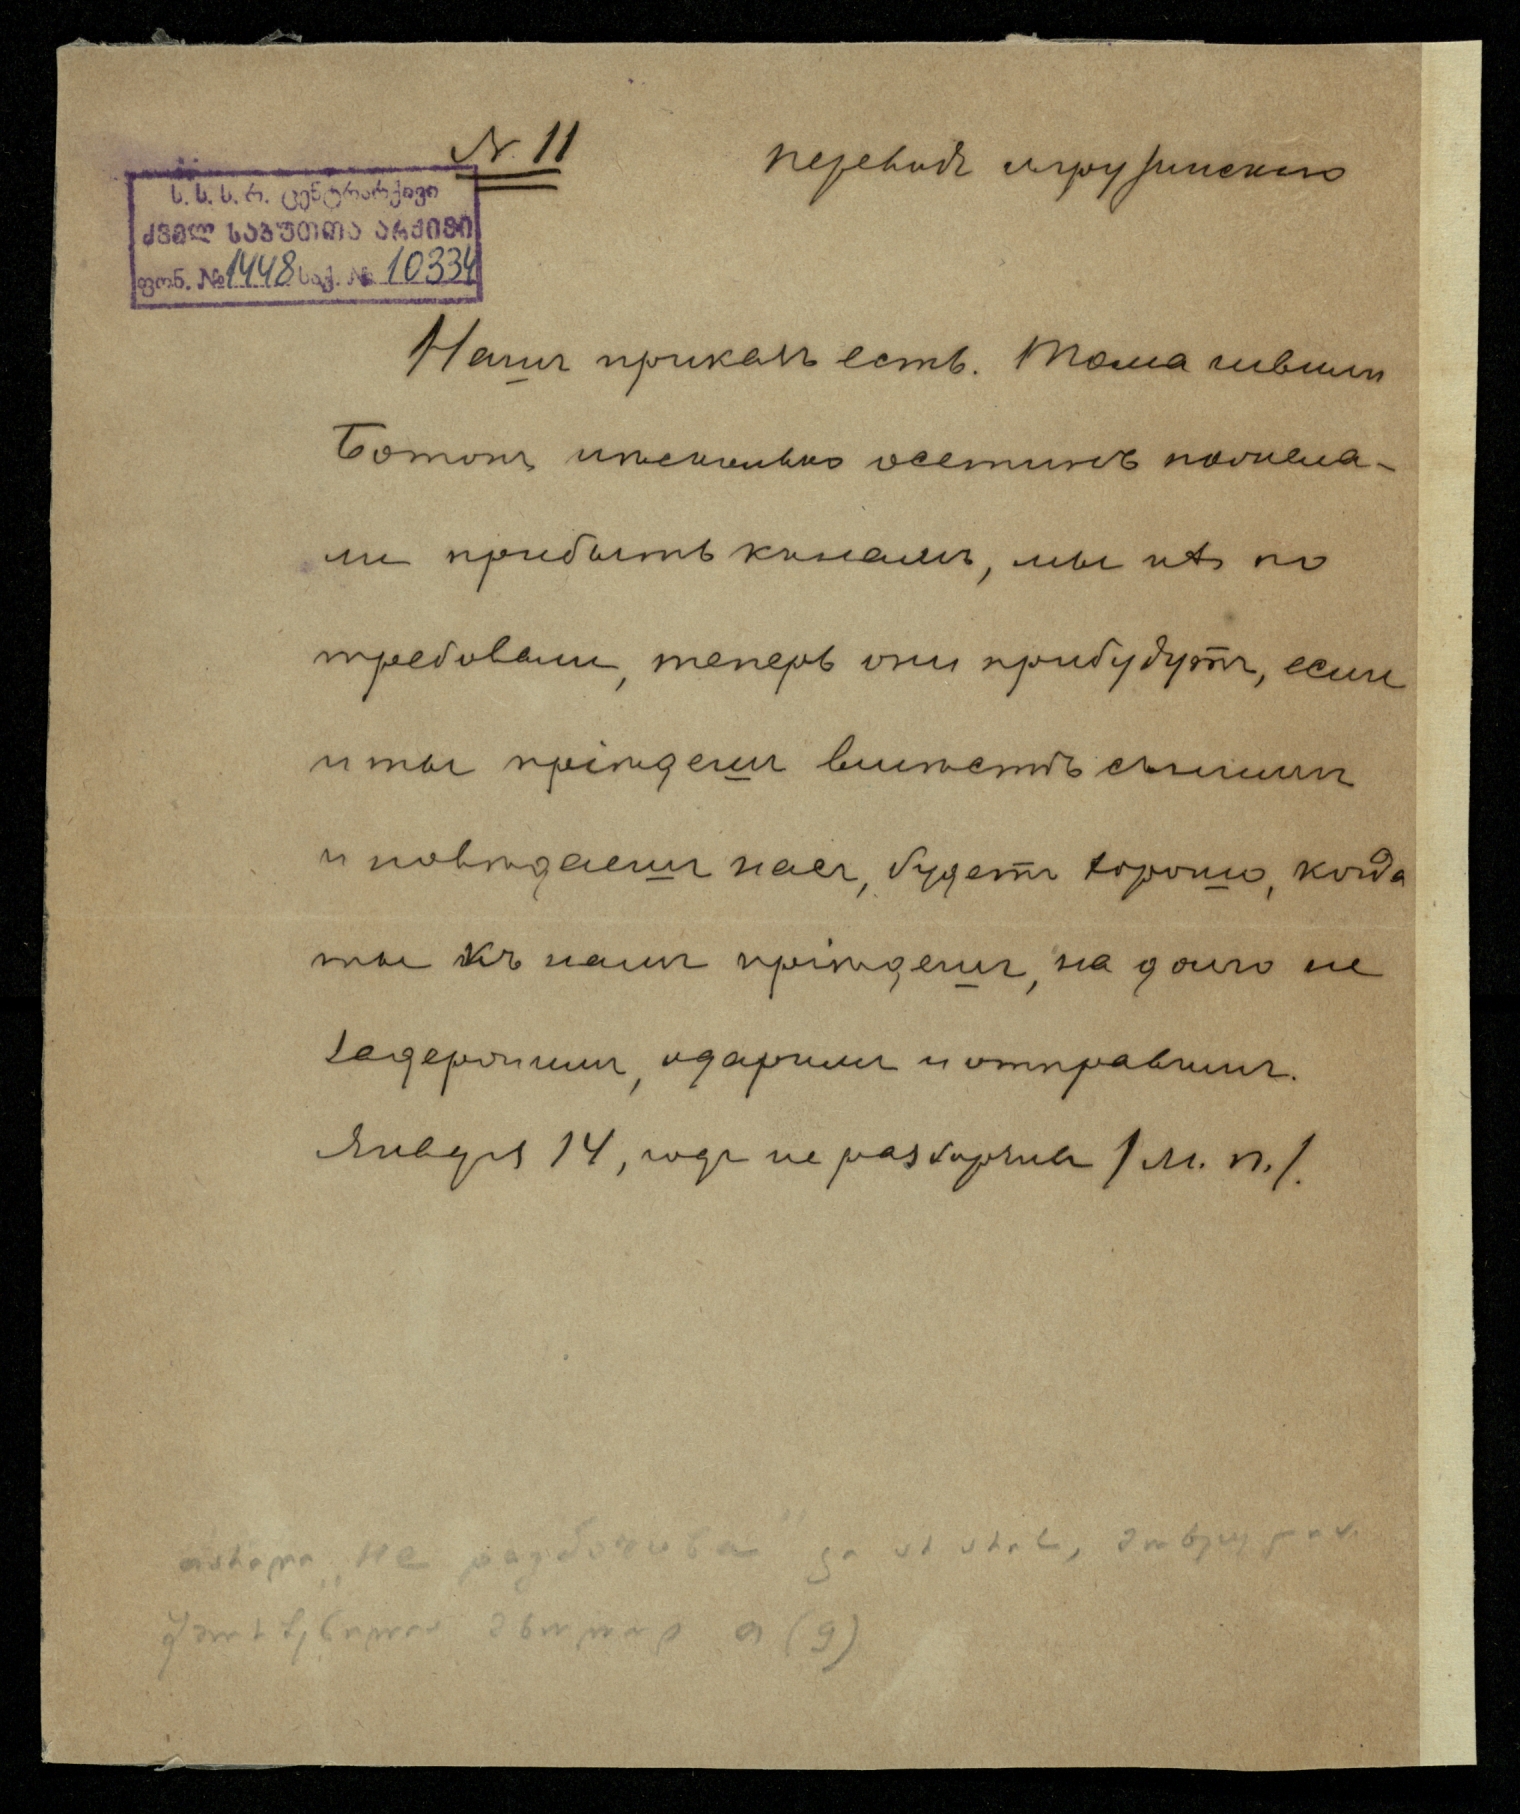 N. 11
переводъ съ грузинскаго
ს. ს. ს. რ. ცენტრარქივი
ძველ საბუთთა არქივი
ფონ. № 1448 საქ. № 10334
Нашъ приказъ есть. Тома
нѣсколько осетинъ пожела-
ли прибыть къ намъ, мы ихъ по
требовали, теперь они прибудутъ, если
и ты пріѣдешъ вмѣстѣ съ ними
и повидаешъ насъ, будетъ хорошо, когда
ты къ намъ пріѣдешъ, на долго не
задержимъ, одаримъ и отправимъ.
Января 14, годъ не разборчива /м. п./.
„не разборчива"